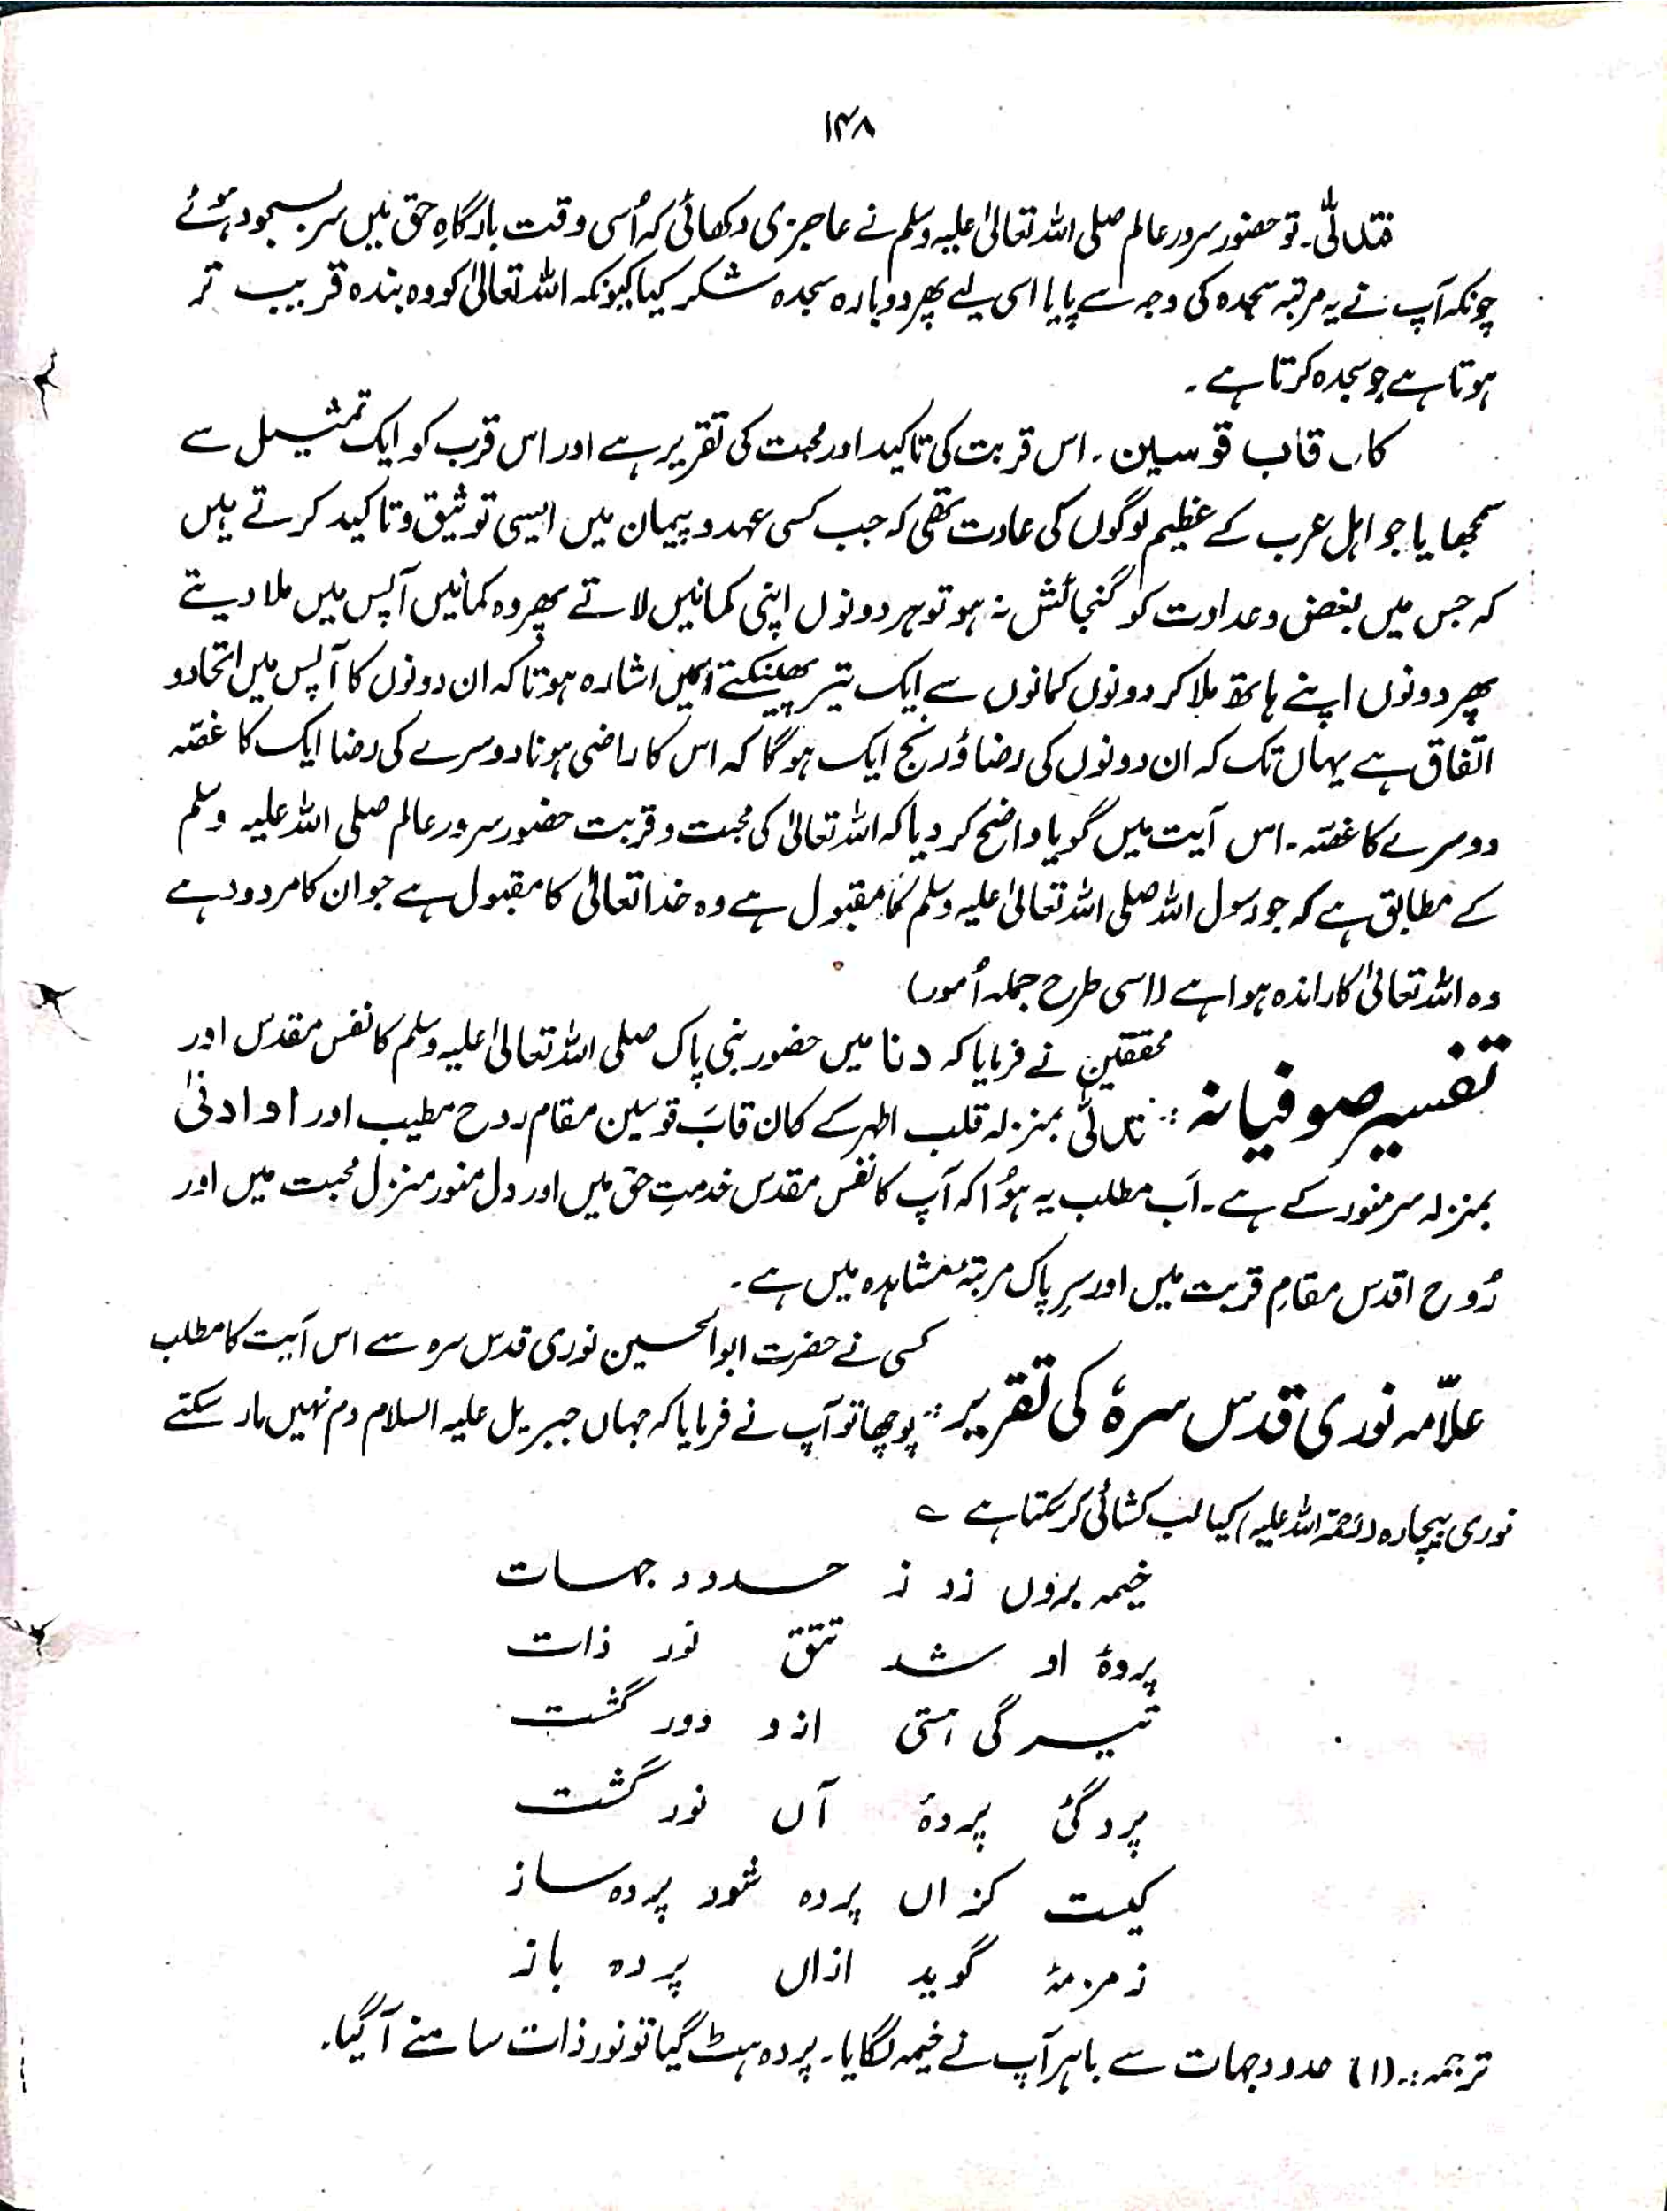 ۱۴۸
فتدلّٰی۔ تو حضور سرور عالم صلی اللہ تعالیٰ علیہ وسلم نے عاجزی دکھائی کہ اُسی وقت بارگاہِ حق میں سر بسجود ہوئے
چونکہ آپ نے یہ مرتبہ سجدہ کی وجہ سے پایا اسی لیے پھر دوبارہ سجدہ شکر کیا کیونکہ اللہ تعالیٰ کو وہ بندہ قریب تر
ہوتا ہے جو سجدہ کرتا ہے ۔
کان قاب قوسین ۔ اس قربت کی تاکید اور محبت کی تقریر ہے اور اس قرب کو ایک تمثیل سے
سمجھایا جو اہل عرب کے عظیم لوگوں کی عادت تھی کہ جب کسی عہد و پیمان میں ایسی توثیق و تاکید کرتے ہیں
کہ جس میں بغض و عداوت کو گنجائش نہ ہو تو ہر دونوں اپنی کمانیں لاتے پھر وہ کمانیں آپس میں ملا دیتے
پھر دونوں اپنے ہاتھ ملا کر دونوں کمانوں سے ایک تیر پھینکتے اسمیں اشارہ ہوتا کہ ان دونوں کا آپس میں اتحاد و
اتفاق ہے یہاں تک کہ ان دونوں کی رضا ؤ رنج ایک ہوگا کہ اس کا راضی ہونا دوسرے کی رضا ایک کا غصّہ
دوسرے کا غصّہ ۔ اس آیت میں گویا واضح کر دیا کہ اللہ تعالیٰ کی محبت و قربت حضور سرور عالم صلی اللہ علیہ وسلم
کے مطابق ہے کہ جو رسول اللہ صلی اللہ تعالیٰ علیہ وسلم کا مقبول ہے وہ خدا تعالیٰ کا مقبول ہے جو ان کا مردود ہے
وہ اللہ تعالیٰ کا راندہ ہوا ہے (اسی طرح جملہ اُمور)
محققین نے فرمایا کہ دنا میں حضور نبی پاک صلی اللہ تعالیٰ علیہ وسلم کا نفس مقدس اور
تفسیر صوفیانہ :: تدلّٰی بمنزلہ قلب اطہر کے کان قابَ قوسین مقام روح مطیب اور او ادنیٰ
بمنزلہ سر منور کے ہے ۔ اَب مطلب یہ ہوُا کہ آپ کا نفس مقدس خدمتِ حق میں اور دل منور منزل محبت میں اور
رُوح اقدس مقامِ قربت میں اور سِر پاک مرتبۂ مشاہدہ میں ہے ۔
کسی نے حضرت ابو الحسین نوری قدس سرہ سے اس آیت کا مطلب
علاّمہ نوری قدس سرہٗ کی تقریر :: پوچھا تو آپ نے فرمایا کہ جہاں جبریل علیہ السلام دم نہیں مار سکتے
نوری بیچارہ (رحمۃ اللہ علیہ) کیا لب کشائی کر سکتا ہے ؎
خیمہ بروں زد ز حدود جہات
پردۂ او شد تتق نور ذات
تیرگی ہستی ازو دور گشت
پردگیٔ پردۂ آں نور گشت
کیست کزاں پردہ شود پردہ ساز
زمزمۂ گوید ازاں پردہ باز
ترجمہ :۔ (۱) حدود جہات سے باہر آپ نے خیمہ لگایا ۔ پردہ ہٹ گیا تو نور ذات سامنے آ گیا۔